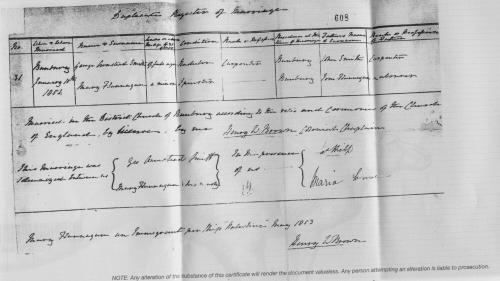 Duplicate Register of Marriages
608
No.
When & Where Married
Name & Surname
Condition
Rank or Profession
31
Bunbury
January
1854
George Armstead Smith
of full age
Bachelor
Carpenter
Bunbury
John Smith
Carpenter
Mary Flannagan
Spinster
Bunbury
Tom Flannagan
Labourer
Married in the District Church of Bunbury according to the rites and ceremonies of the Church
of England, by license, by me Henry W Brown Colonial Chaplain
This Marriage was
solemnized between us
Geo Armstead Smith
Mary Flannagan
In the presence
of us
Maria
Mary Flannagan an Immigrant per Ship Palestine May 1853
Henry W Brown
NOTE: Any alteration of the substance of this certificate will render the document valueless. Any person attempting an alteration is liable to prosecution.